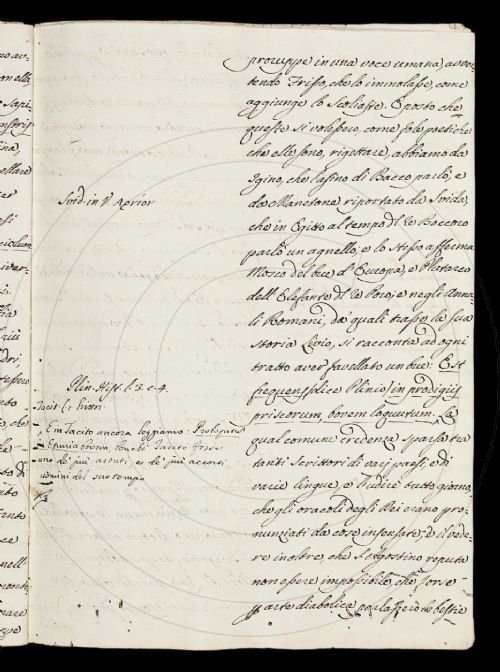 proruppe in una voce umana, avver
tendo Frisso, che lo immolasse, come
aggiunge lo Scoliaste. E posto che
queste si volessero, come fole poetiche
che elle sono, rigettare, abbiamo da
Igino, che l'asino di Bacco parlò, e
da Manetone riportato da Svida,
che in Egitto al tempo del Re Boccoro
parlò un agnello, e lo stesso afferma
Mosco del bue d'Europa, e Plutarco
dell'Elefante del Re Poro, e negli Anna
li Romani, da' quali trasse la sua
storia Livio, si racconta ad ogni
tratto aver favellato un bue: Est
frequens (dice Plinio) in prodigijs
priscorum, bovem loquutum. La
qual comune credenza sparsa tra
tanti scrittori di varj paesi, e di
varie lingue, e l'udire tutto giorno,
che gli oracoli degli Dei erano pro-
nunziati da cose insensate; e il vede-
re inoltre, che S. Agostino reputa
non essere impossibile, che forse
arte diabolica parlassero le bestie
Svid. in V. Ἀρνίον
Plin. Hist. l. 3. c. 4.
Tacit. l. 1. histor.
E in Tacito ancora leggiamo: Proloquutum
in Etruria bovem, benchè Tacito fosse
uno de' più astuti, e de' più accorti
uomini del suo tempo